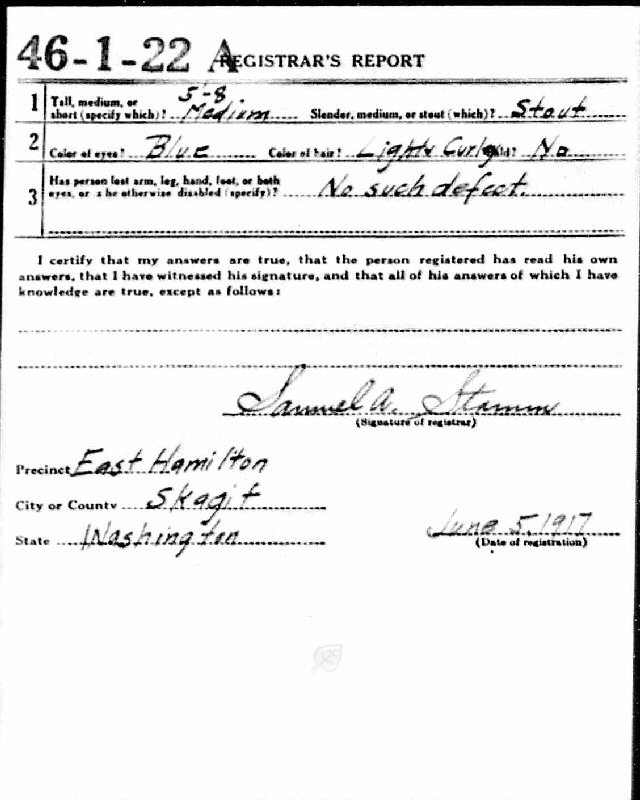 46-1-22 A REGISTRAR'S REPORT
5'-8
1 Tall, medium, or short (specify which)? Medium Slender, medium, or stout (which)? Stout
2 Color of eyes? Blue Color of hair? Light & Curly Bald? No
3 Has person lost arm, leg, hand, foot, or both
eyes, or is he otherwise disabled (specify)? No such defect.
I certify that my answers are true, that the person registered has read his own
answers, that I have witnessed his signature, and that all of his answers of which I have
knowledge are true, except as follows:
Samuel A. Stamm
(Signature of registrar)
Precinct East Hamilton
City or County Skagit
State Washington
June 5, 1917
(Date of registration)